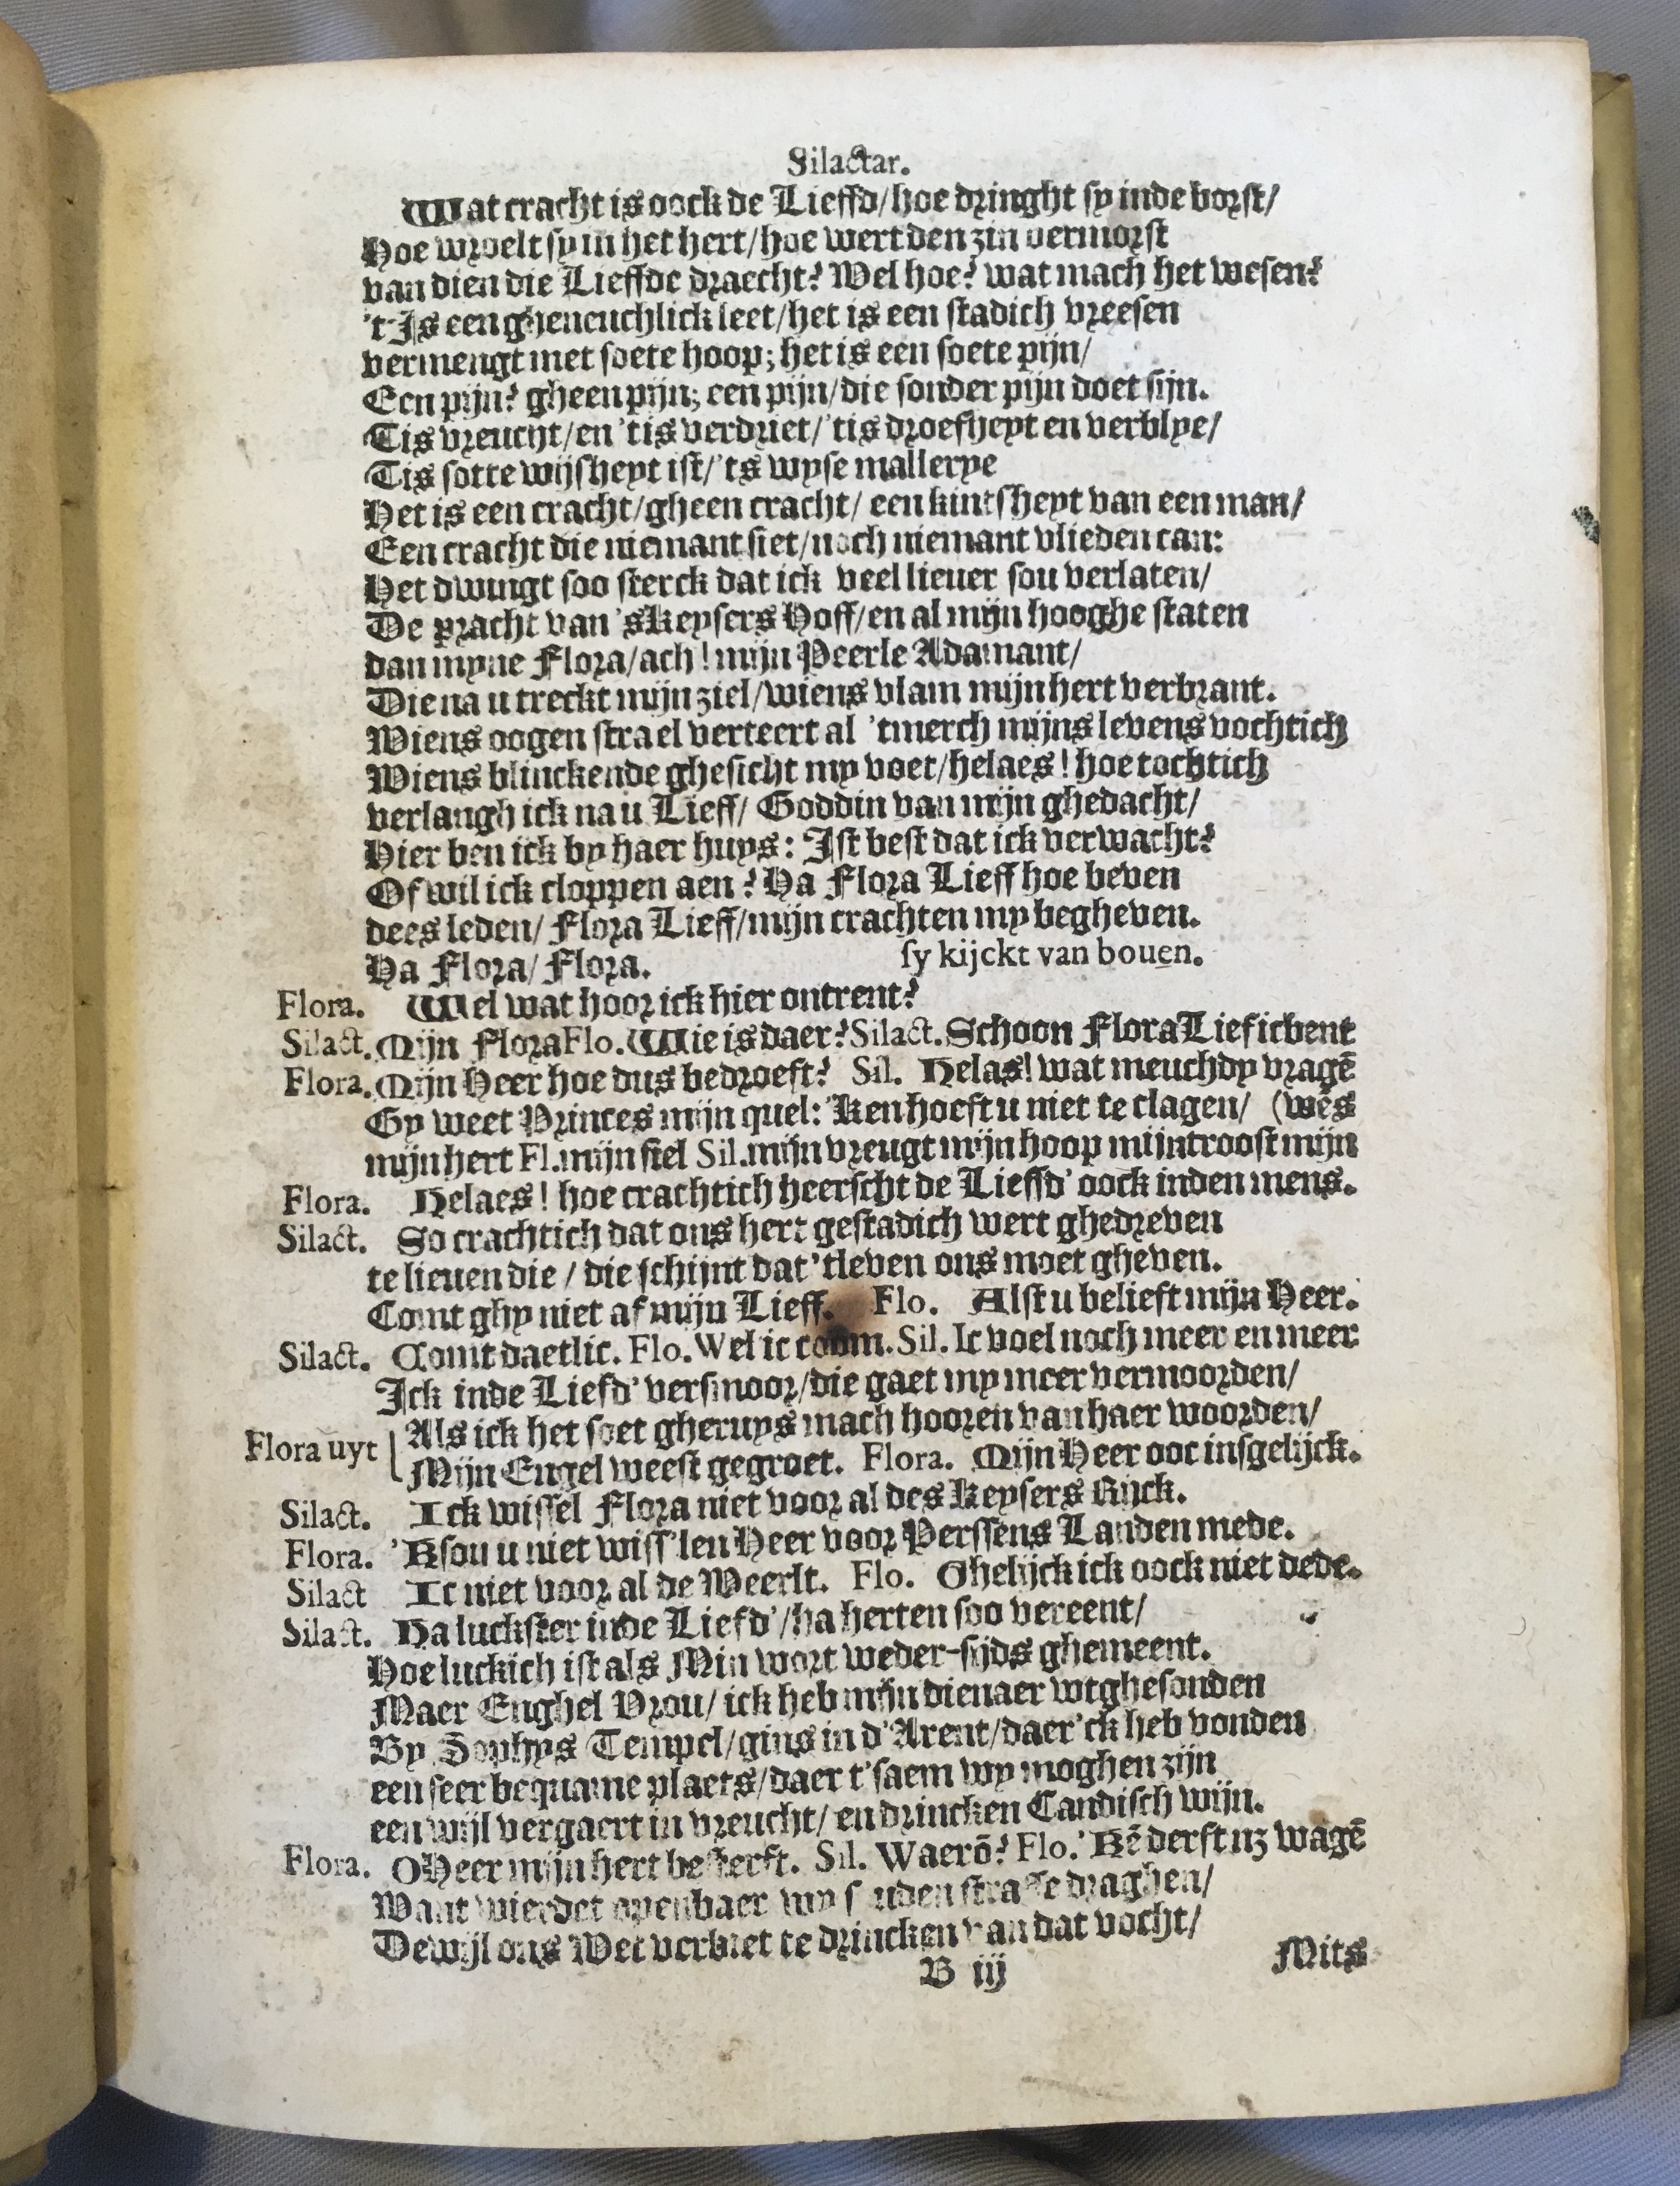 Silactar.
Wat cracht is oock de Lieffd/hoe dringht sy inde borst/
Hoe wroelt sy in het hert/hoe wert den zin vermorst
van dien die Lieffde draecht? Wel hoe? wat mach het wesen?
't Is een gheneuchlick leet/het is een stadich vreesen
vermengt met soete hoop; het is een soete pijn/
Een pijn? gheen pijn; een pijn/die sonder pijn doet sijn.
Tis vreucht/en 'tis verdriet/'tis droefheyt en verblye/
Tis sotte wijsheyt ist/'ts wyse mallerye
Het is een cracht/gheen cracht/ een kintsheyt van een man/
Een cracht die niemant siet/noch niemant vlieden can:
Het dwingt soo sterck dat ick veel liever sou verlaten/
De pracht van 'sKeysers Hoff/en al mijn hooghe staten
dan myne Flora/ach! mijn Peerle Adamant/
Die na u treckt mijn ziel/wiens vlam mijn hert verbrant.
Wiens oogen strael verteert al 'tmerch mijns levens vochtich
Wiens blinckende ghesicht my voet/helaes! hoe tochtich
verlangh ick na u Lieff/ Goddin van mijn ghedacht/
Hier ben ick by haer huys: Ist best dat ick verwacht?
Of wil ick cloppen aen? Ha Flora Lieff hoe beven
dees leden/ Flora Lieff/mijn crachten my begheven.
Ha Flora/ Flora. sy kijckt van bouen.
Flora. Wel wat hoor ick hier ontrent?
Silact. Mijn Flora Flo. Wie is daer? Silact. Schoon Flora Lief ic bent
Flora. Mijn Heer hoe dus bedroeft? Sil. Helas! wat meuchdy vragē
Gy weet Princes mijn quel: 'Ken hoeft u niet te clagen/ (wēs
mijn hert Fl. mijn siel Sil. mijn vreugt mijn hoop mijn troost mijn
Flora. Helaes! hoe crachtich heerscht de Lieffd' oock inden mens.
Silact. So crachtich dat ons hert gestadich wert ghedreven
te lieuen die / die schijnt dat 'tleven ons moet gheven.
Comt ghy niet af mijn Lieff. Flo. Alst u belieft mijn Heer.
Silact. Comt daetlic. Flo. Wel ic coom. Sil. Ic voel noch meer en meer
Ick inde Liefd' versmoor/die gaet my meer vermoorden/
Als ick het soet gheruys mach hooren van haer woorden/
Flora uyt Mijn Engel weest gegroet. Flora. Mijn Heer ooc insgelijck.
Silact. Ick wissel Flora niet voor al des Keysers Rijck.
Flora. 'Ksou u niet wiss'len Heer voor Perssens Landen mede.
Silact Ic niet voor al de Weerlt. Flo. Ghelijck ick oock niet dede.
Silact. Ha luckster inde Liefd'/ha herten soo vereent/
Hoe luckich ist als Min wort weder-sijds ghemeent.
Maer Enghel Vrou/ ick heb mijn dienaer wtghesonden
By Sophys Tempel/gins in d'Arent/daer'ck heb vonden
een seer bequame plaets/daer t'saem wy moghen zijn
een wijl vergaert in vreucht/ en drincken Candisch wijn.
Flora. O Heer mijn hert besterft. Sil. Waerō? Flo. 'Kē derft nz wagē
Want wierdet openbaer wy souden straffe draghen/
Dewijl ons Wet verbiet te drincken van dat vocht/
B iij Mits